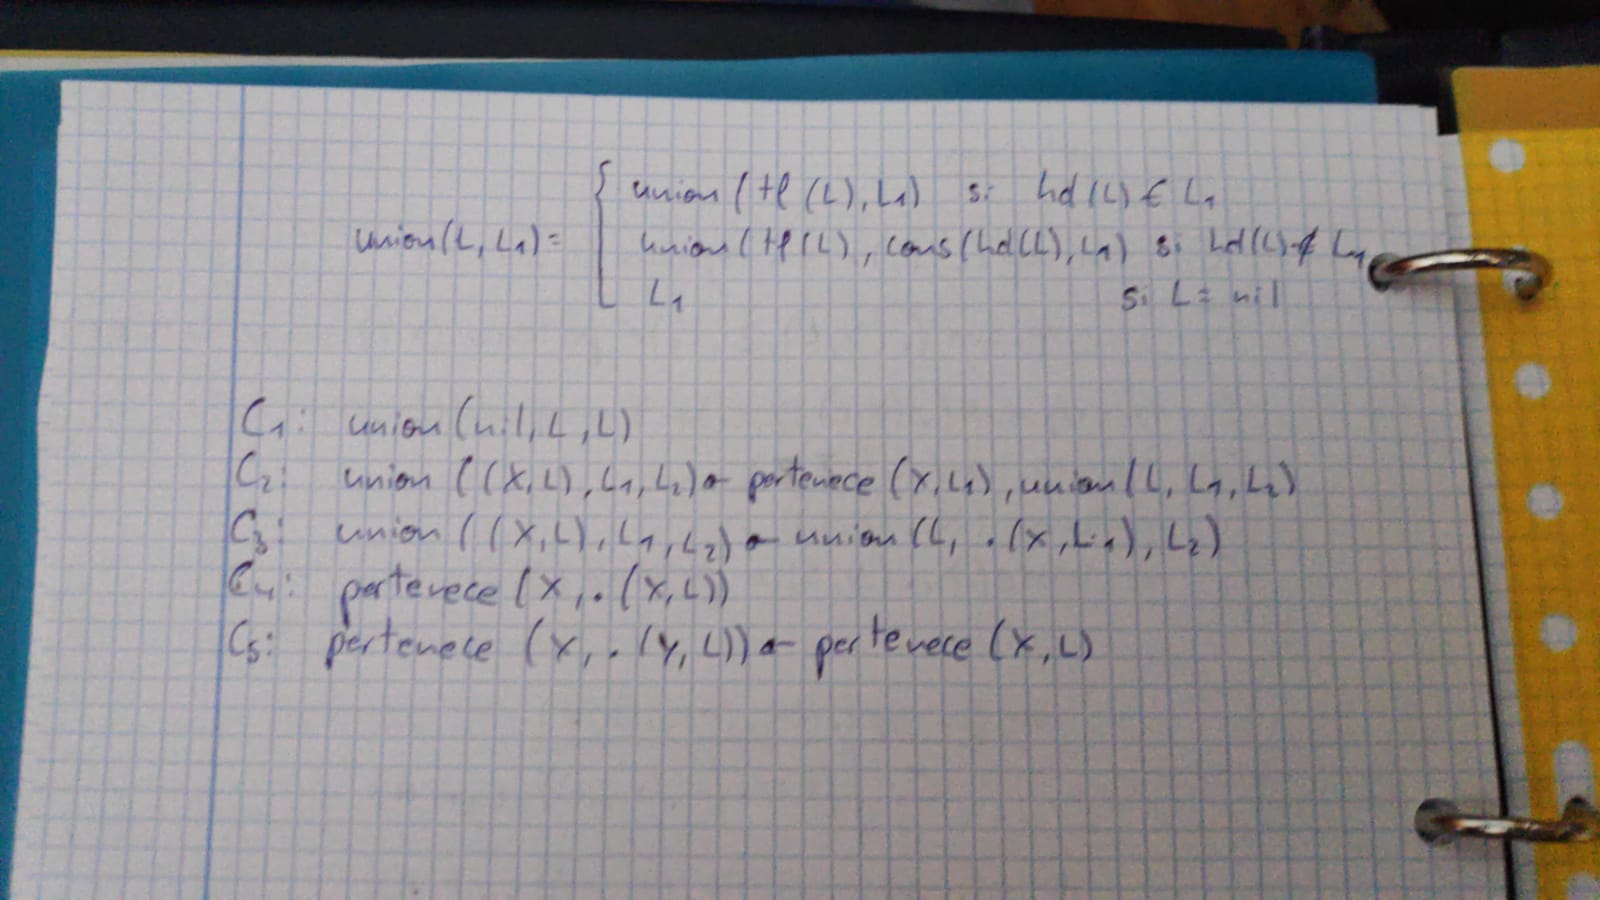 union(tl(L), L1) si hd(L) ∈ L1
union(L, L1) = { union(tl(L), cons(hd(L), L1) si hd(L) ∉ L1
L1 si L = nil
C1: union(nil, L, L)
C2: union((X,L), L1, L2) ← pertenece(X, L1), union(L, L1, L2)
C3: union((X,L), L1, L2) ← union(L, .(X, L1), L2)
C4: pertenece(X, .(X,L))
C5: pertenece(X, .(Y,L)) ← pertenece(X,L)